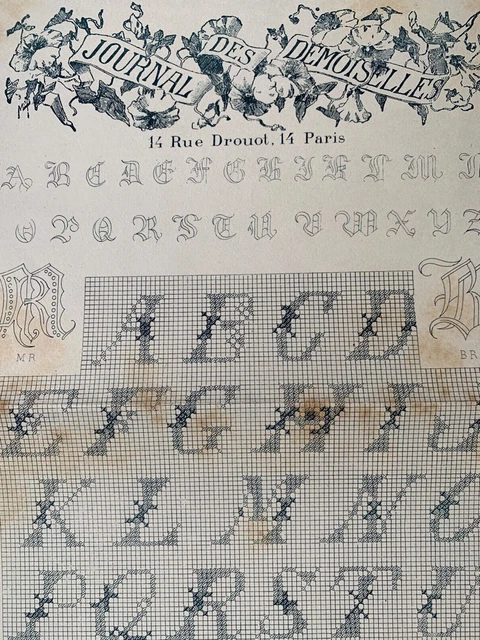 JOURNAL DES DEMOISELLES
14 Rue Drouot, 14 Paris
A B C D E F G H I K L M N
O P Q R S T U V W X Y Z
MR BR
A B C D
E F G H I J
K L M N O
P Q R S T U